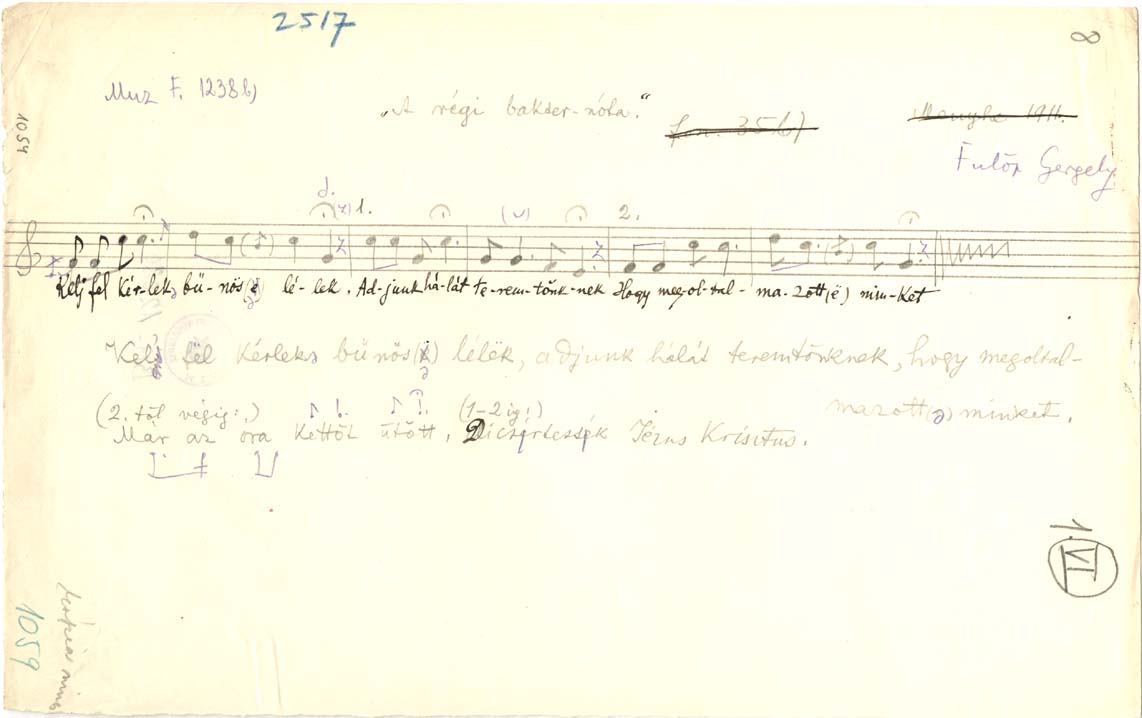 2517
8
Muz F. 1238b)
„A régi bakter-nóta."
fon. 35b)
Menyhe 1911.
Fülöp Gergely
1059
d.
1.
2.
Kelj fel kér-lek ə bű-nös(ë) lé-lek, Ad-junk há-lát te-rem-tőnk-nek Hogy meg-ol-tal-ma-zott(ë) min-ket
Kelj fël kérlek ə bűnös(ə) lélëk, adjunk hálát teremtőnknek, hogy megoltal-
mazott(ə) minket.
(2. től végig:)
(1-2 ig:)
Már az óra kettőt ütött, Dicsértessék Jézus Krisztus.
1.
VI
1059